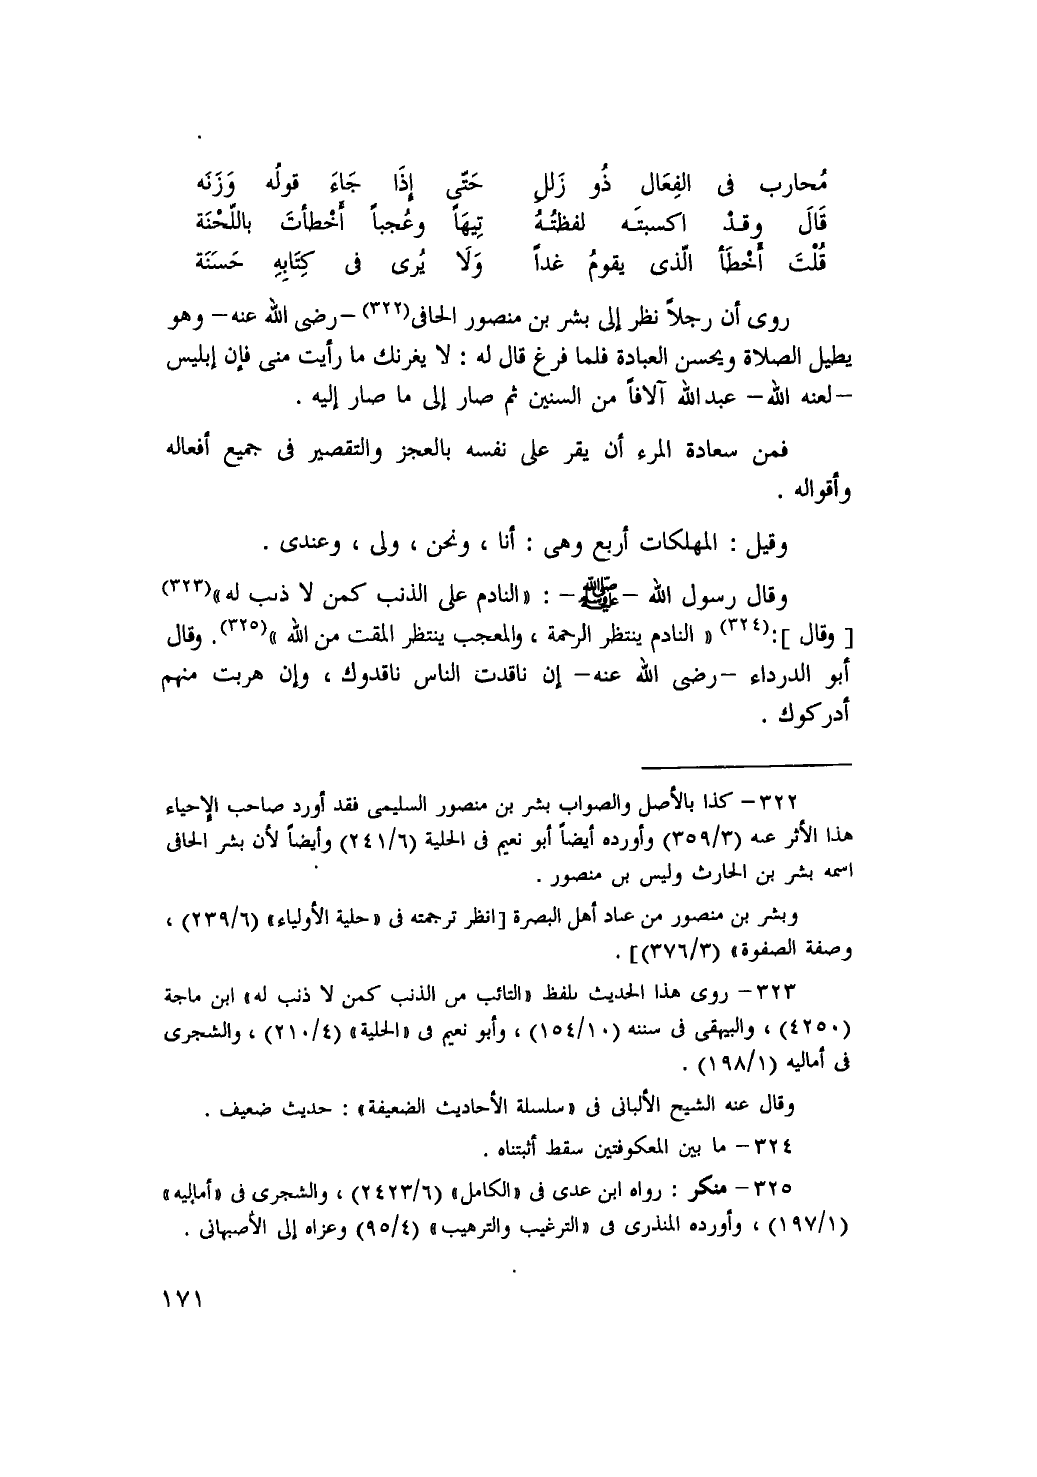 مُحارب فى الفِعَال ذُو زَللِ حَتّى إِذَا جَاءَ قولُه وَزَنَه
قَالَ وقدْ اكسبتَه لفظتُهُ تِيهَاً وعُجباً أَخْطأتَ باللّحْنَة
قُلْتَ أَخْطَأ الّذى يقومُ غداً وَلَا يُرى فى كِتَابِهِ حَسَنَة
روى أن رجلاً نظر إلى بشر بن منصور الحافى(٣٢٢) –رضى الله عنه– وهو
يطيل الصلاة ويحسن العبادة فلما فرغ قال له : لا يغرنك ما رأيت منى فإن إبليس
–لعنه الله– عبد الله آلافاً من السنين ثم صار إلى ما صار إليه .
فمن سعادة المرء أن يقر على نفسه بالعجز والتقصير فى جميع أفعاله
وأقواله .
وقيل : المهلكات أربع وهى : أنا ، ونحن ، ولى ، وعندى .
وقال رسول الله –ﷺ– : «النادم على الذنب كمن لا ذنب له»(٣٢٣)
[ وقال ]:(٣٢٤) « النادم ينتظر الرحمة ، والمعجب ينتظر المقت من الله »(٣٢٥). وقال
أبو الدرداء –رضى الله عنه– إن ناقدت الناس ناقدوك ، وإن هربت منهم
أدركوك .
٣٢٢– كذا بالأصل والصواب بشر بن منصور السليمى فقد أورد صاحب الإحياء
هذا الأثر عنه (٣٥٩/٣) وأورده أيضاً أبو نعيم فى الحلية (٢٤١/٦) وأيضاً لأن بشر الحافى
اسمه بشر بن الحارث وليس بن منصور .
وبشر بن منصور من عباد أهل البصرة [انظر ترجمته فى «حلية الأولياء» (٢٣٩/٦) ،
وصفة الصفوة» (٣٧٦/٣)] .
٣٢٣– روى هذا الحديث بلفظ «التائب من الذنب كمن لا ذنب له» ابن ماجة
(٤٢٥٠) ، والبيهقى فى سننه (١٥٤/١٠) ، وأبو نعيم فى «الحلية» (٢١٠/٤) ، والشجرى
فى أماليه (١٩٨/١) .
وقال عنه الشيخ الألبانى فى «سلسلة الأحاديث الضعيفة» : حديث ضعيف .
٣٢٤– ما بين المعكوفتين سقط أثبتناه .
٣٢٥– منكر : رواه ابن عدى فى «الكامل» (٢٤٢٣/٦) ، والشجرى فى «أماليه»
(١٩٧/١) ، وأورده المنذرى فى «الترغيب والترهيب» (٩٥/٤) وعزاه إلى الأصبهانى .
١٧١